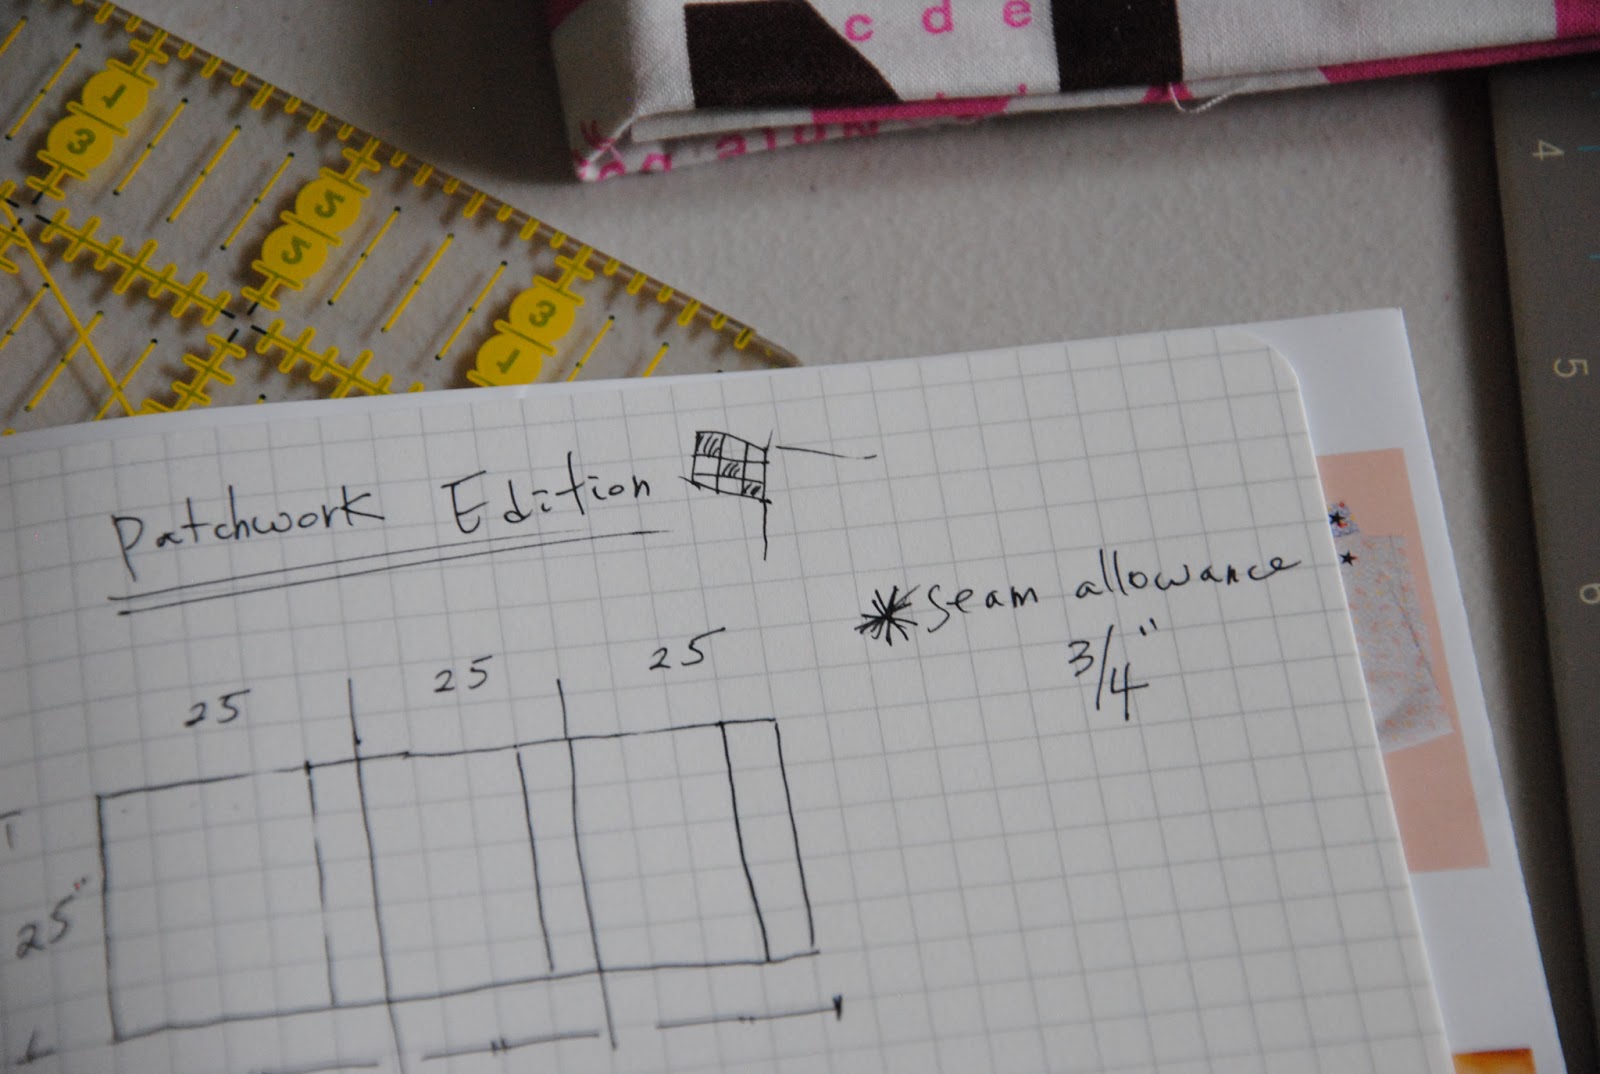 c d e
1
3
5
5
3
1
4
5
6
Patchwork Edition
* Seam allowance
3/4"
25 25 25
25"